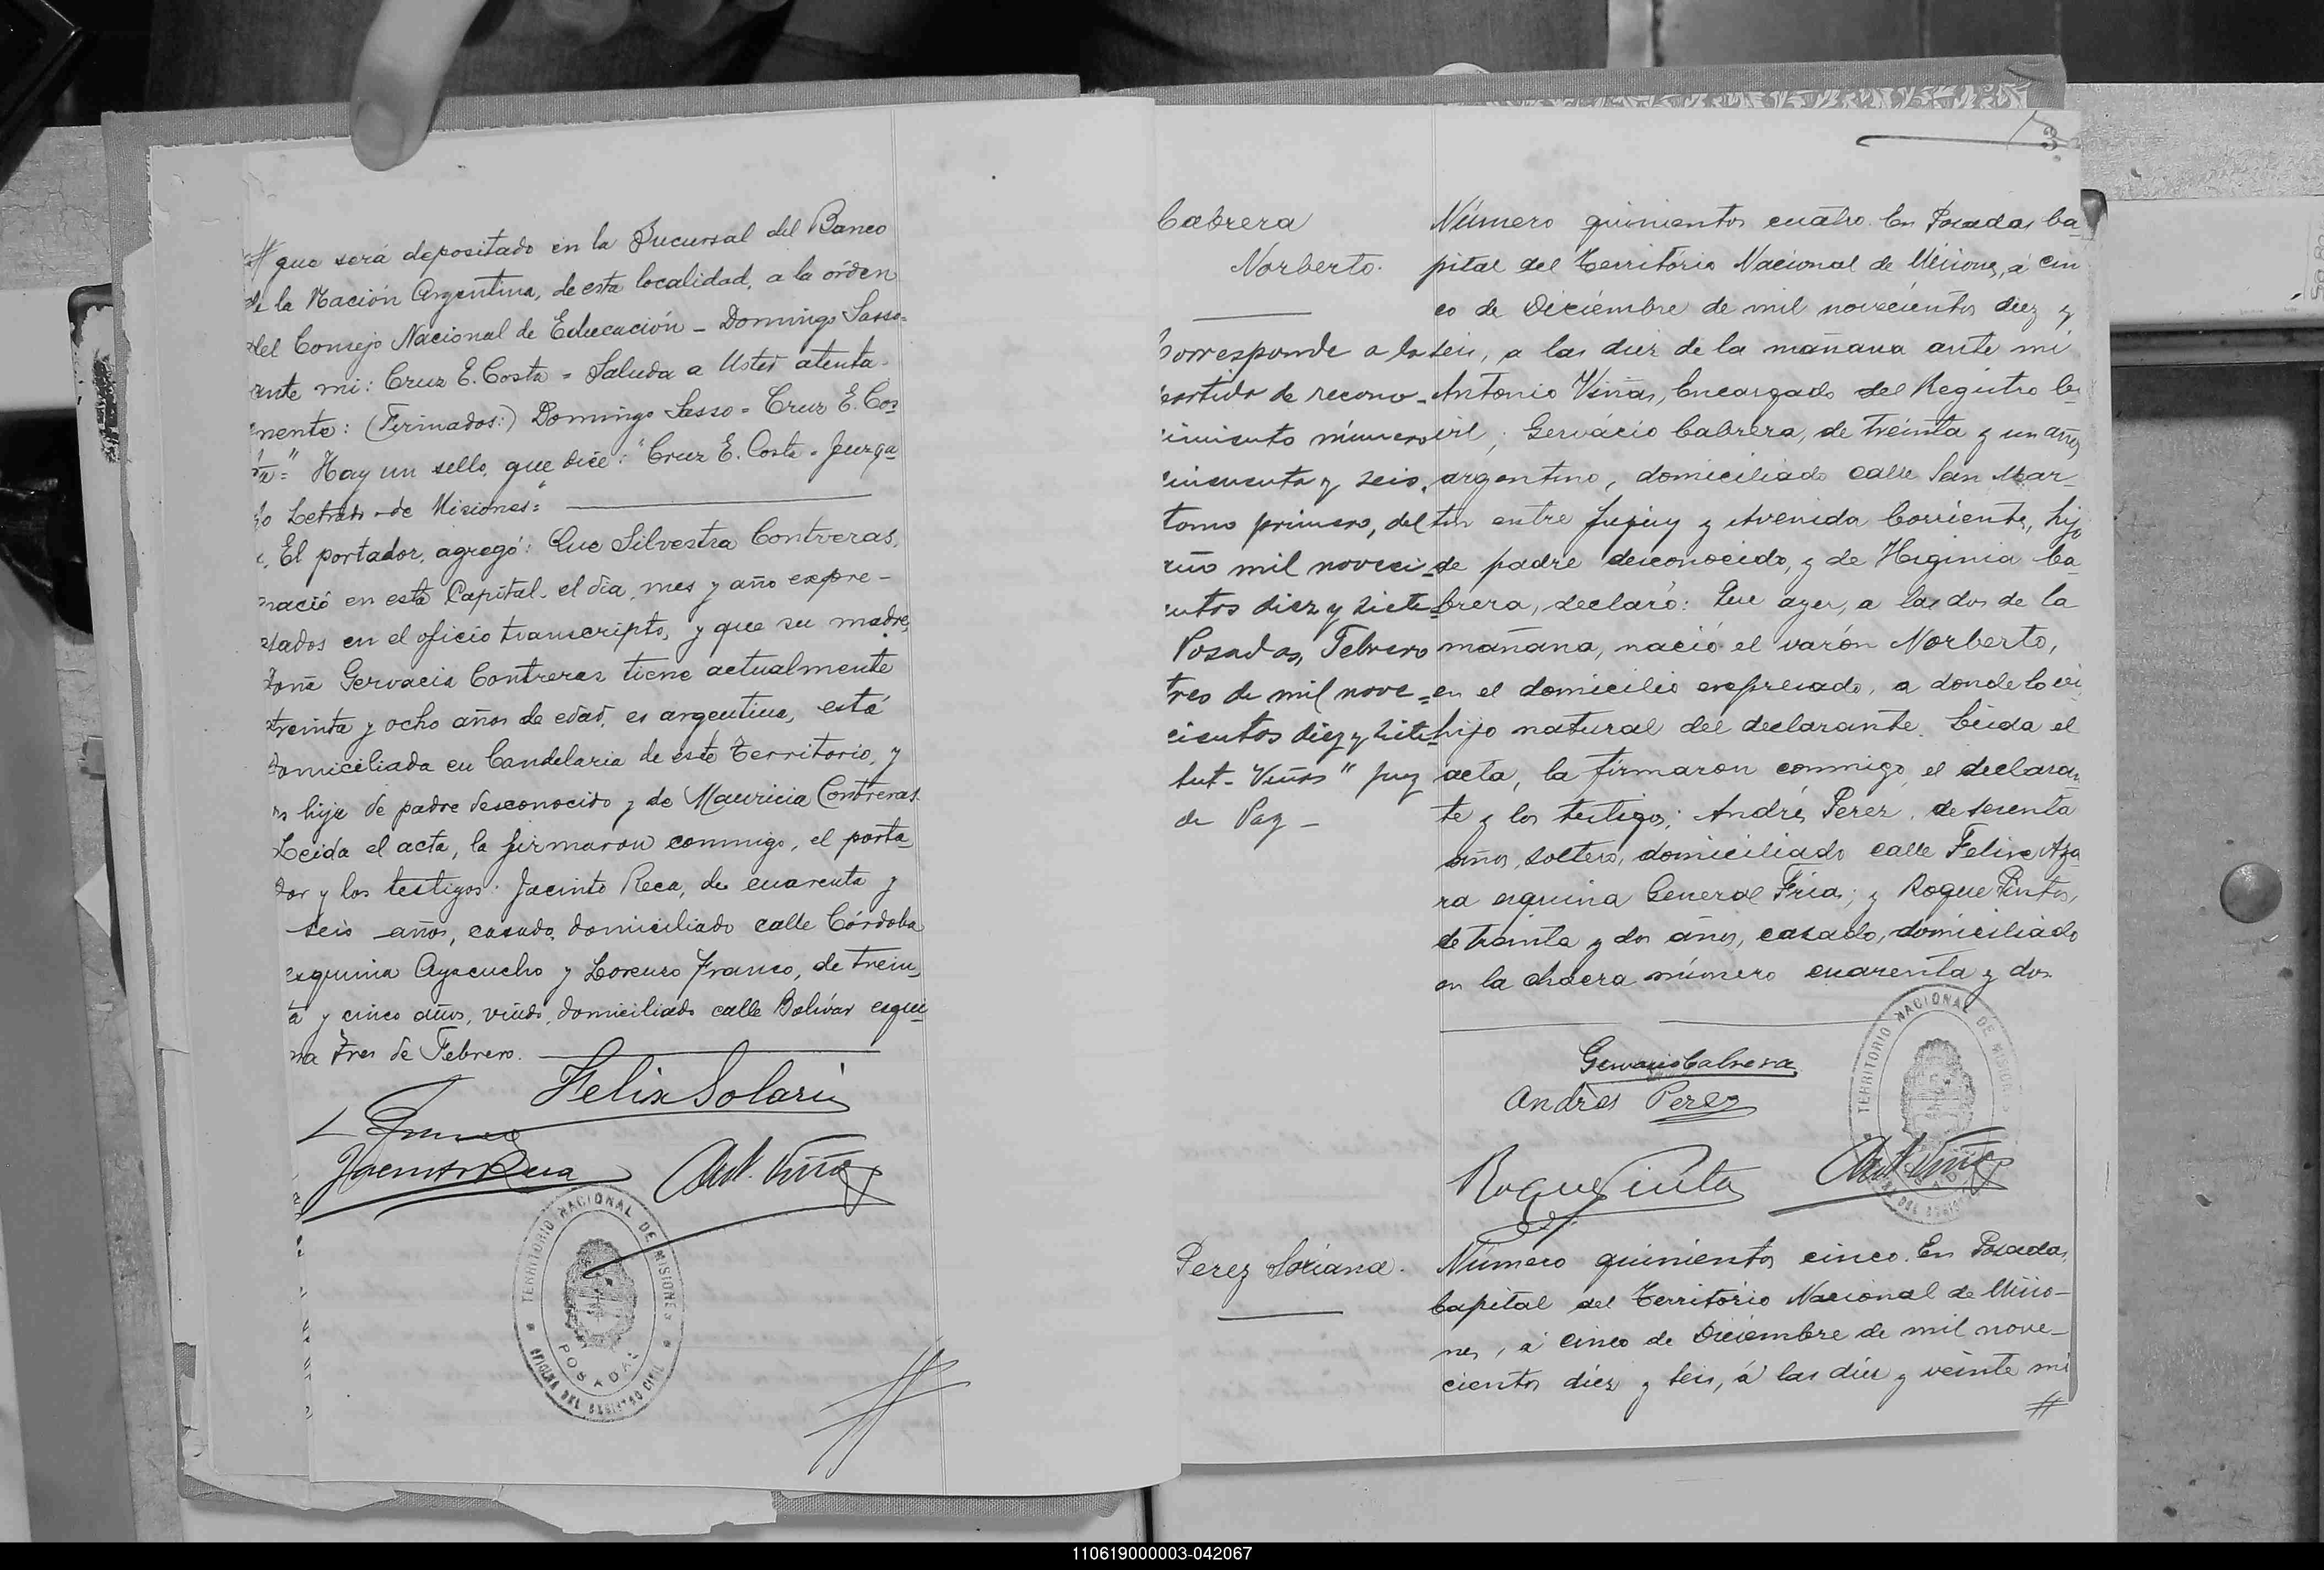 # que será depositado en la Sucursal del Banco
de la Nación Argentina, de esta localidad, a la órden
del Consejo Nacional de Educación - Domingo Sasso=
ante mi: Cruz E. Costa = Saluda a Usted atenta-
mente: (Firmados:) Domingo Sasso = Cruz E. Cos=
ta=" Hay un sello, que dice: "Cruz E. Costa - Juzga
do Letrado de Misiones="
El portador, agregó: Que Silvestra Contreras,
nació en esta Capital, el día, mes y año expre-
sados en el oficio transcripto, y que su madre,
doña Gervacia Contreras tiene actualmente
treinta y ocho años de edad, es argentina, está
domiciliada en Candelaria de este Territorio, y
es hija de padre desconocido y de Mauricia Contreras.
Leida el acta, la firmaron conmigo, el porta
dor y los testigos: Jacinto Reca, de cuarenta y
seis años, casado, domiciliado calle Córdoba
esquina Ayacucho y Lorenzo Franco, de trein
ta y cinco años, viudo, domiciliado calle Bolívar esqui
na Tres de Febrero.
Felix Solari
L Franco
Jacinto Reca Ant. Viñas
TERRITORIO NACIONAL DE MISIONES
POSADAS
OFICINA DEL REGISTRO CIVIL
#
3
Cabrera
Norberto.
Corresponde a la
partida de recono-
cimiento número
cincuenta y seis,
tomo primero, del
año mil noveci-
entos diez y siete-
Posadas, Febrero
tres de mil nove=
cientos diez y siete-
Ant. Viñas" Juez
de Paz -
Número quinientos cuatro. En Posadas Ca-
pital del Territorio Nacional de Misiones, á cin
co de Diciembre de mil novecientos diez y
seis, a las diez de la mañana ante mi
Antonio Viñas, Encargado del Registro Ci-
vil; Gervácio Cabrera, de treinta y un años
argentino, domiciliado calle San Mar-
tin entre Jujuy y Avenida Corrientes, hijo
de padre desconocido, y de Higinia Ca-
brera, declaró: Que ayer, a las dos de la
mañana, nació el varón Norberto,
en el domicilio expresado, a donde lo vi
hijo natural del declarante. Leida el
acta, la firmaron conmigo, el declaran
te y los testigos: Andrés Perez, de sesenta
años, soltero, domiciliado calle Felix Aza
ra esquina General Frias; y Roque Pintos,
de treinta y dos años, casado, domiciliado
en la chacra número cuarenta y dos.
Gervacio Cabrera
Andrés Perez
Roque Pinto Ant. Viñas
TERRITORIO NACIONAL DE MISIONES
Perez Soriana.
Número quinientos cinco. En Posadas,
Capital del Territorio Nacional de Misio-
nes, á cinco de Diciembre de mil nove-
cientos diez y seis, á las diez y veinte mi
#
110619000003-042067